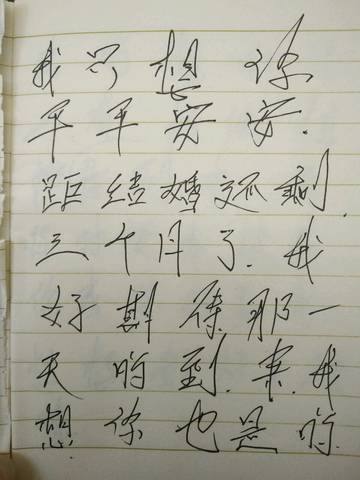 我只想你
平平安安.
距结婚还剩
三个月了.我
好期待那一
天的到.来.我
想你也是的.